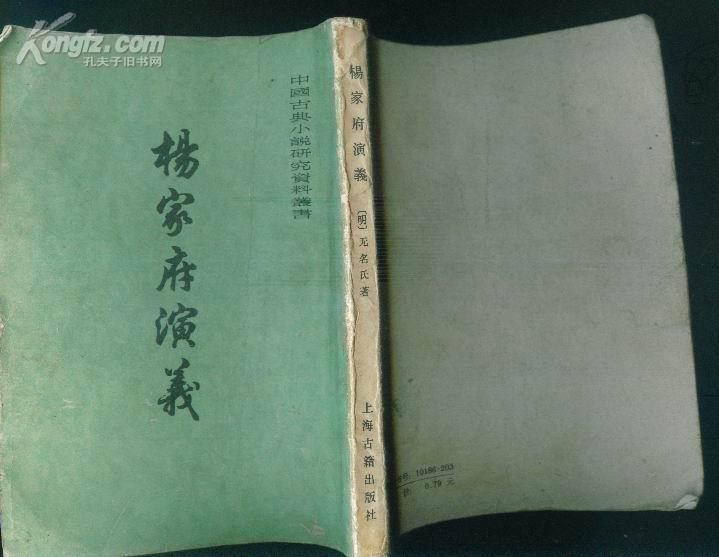 Kongfz.com
孔夫子旧书网
中國古典小説研究資料叢書
楊家府演義
楊家府演義
〔明〕无名氏著
上海古籍出版社
号：10186·203
0.79 元